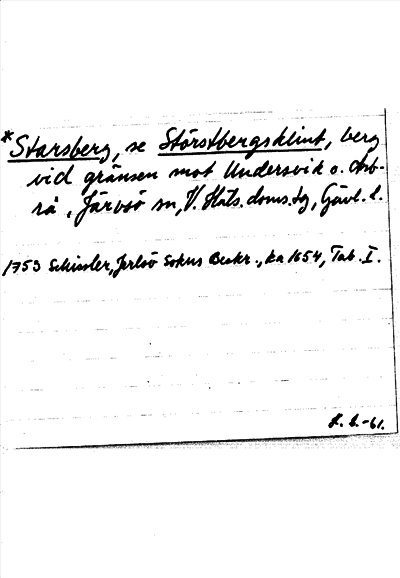 *Starsberg, se Störstbergsklint, berg
vid gränsen mot Undersvik o. Arb-
rå, Järvsö sn, V. Häls. doms.dg, Gävl. l.
1753 Schissler, Jerlsö Sokns Beskr., ka 1654, Tab. I.
L. L.-61.